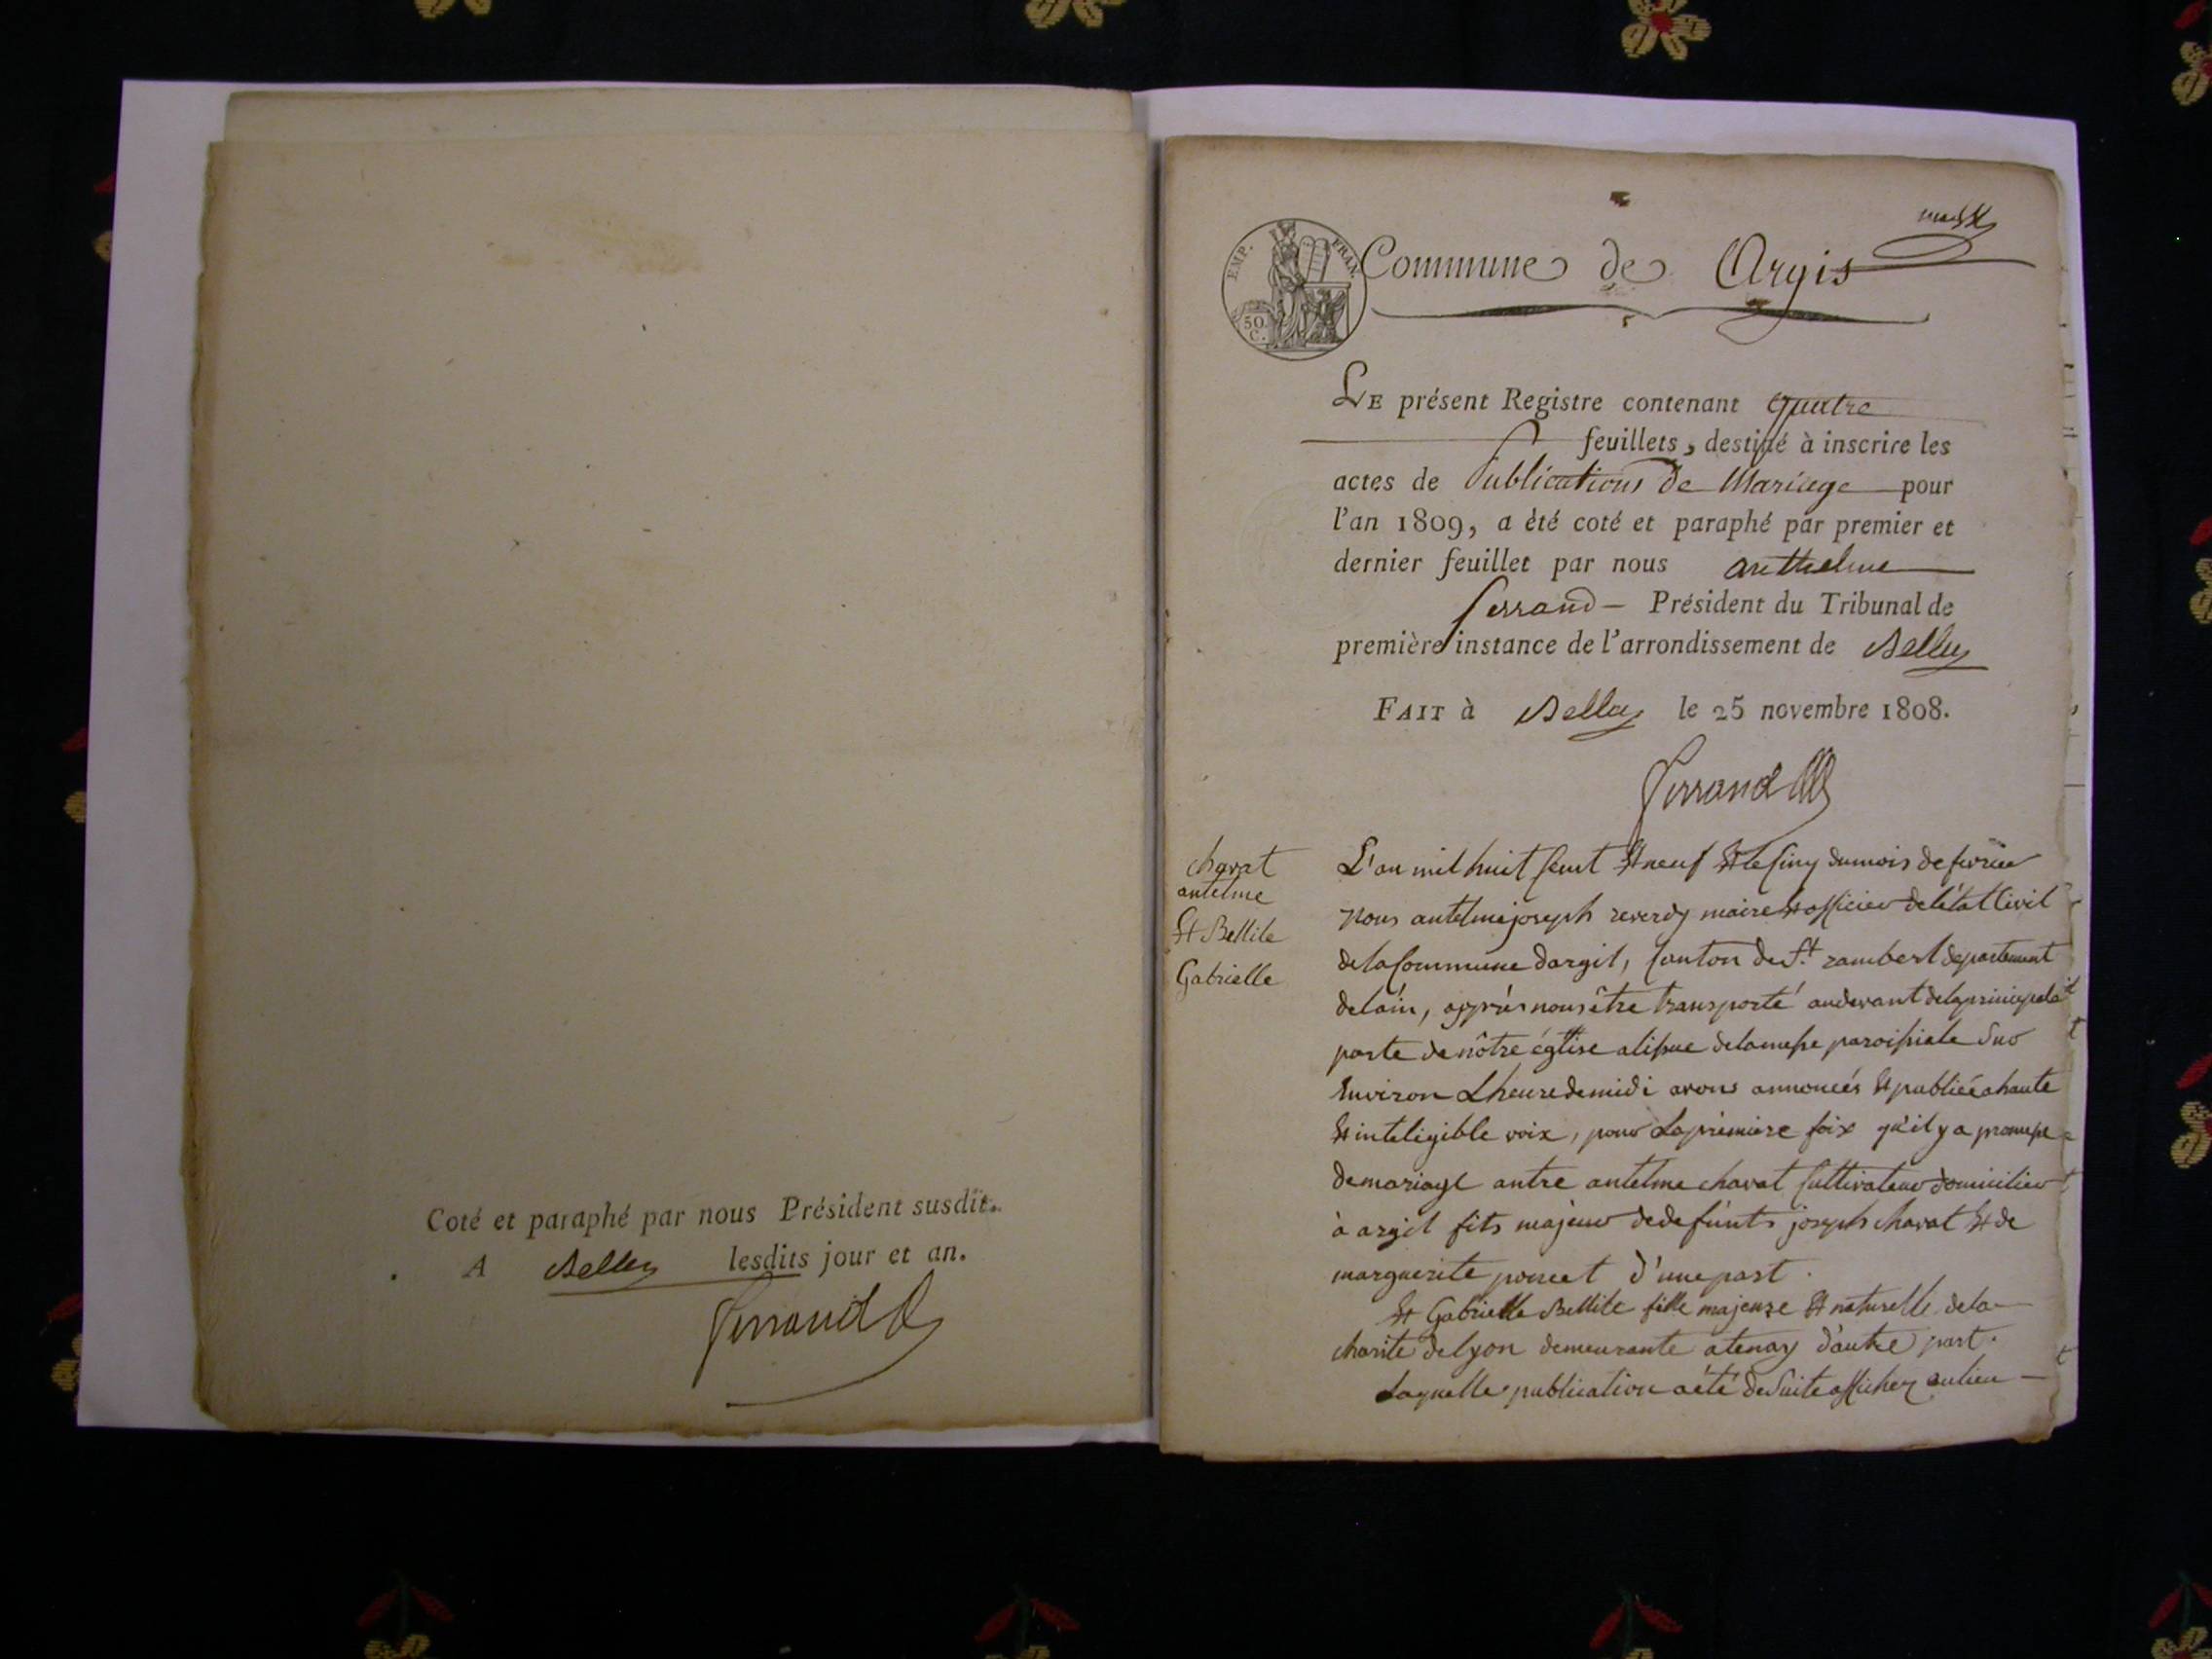 Coté et paraphé par nous Président susdit.
A Belley lesdits jour et an.
Ferrand
EMP. FRAN.
50 C.
Commune de Argis
LE présent Registre contenant quatre
feuillets, destiné à inscrire les
actes de Publications de Mariage pour
l'an 1809, a été coté et paraphé par premier et
dernier feuillet par nous anthelme
ferrand - Président du Tribunal de
première instance de l'arrondissement de Belley
FAIT à Belley le 25 novembre 1808.
Ferrand
chavat
antelme
Et Bellile
Gabrielle
L'an mil huit Cent Et neuf Et le Cinq du mois de fevrier
nous antelme joseph reverdy maire Et officier de l'état Civil
de la Commune dargit, Canton de St. rambert departement
de lain, apprés nous être transporté audevant de la principale
porte de nôtre église alissue de la messe paroissiale Sur
Environ Lheure de midi avons annoncés Et publiée a haute
Et inteligible voix, pour La premiere foix qu'il y a promesse
de mariage antre antelme chavat Cultivateur domicilier
à argit fils majeur de defunts joseph chavat Et de
marguerite poncet d'une part.
Et Gabrielle Bellile fille majeure Et naturelle de la
charité de lyon demeurante atenay d'autre part.
Laquelle publication a été de Suite afficher au lieu